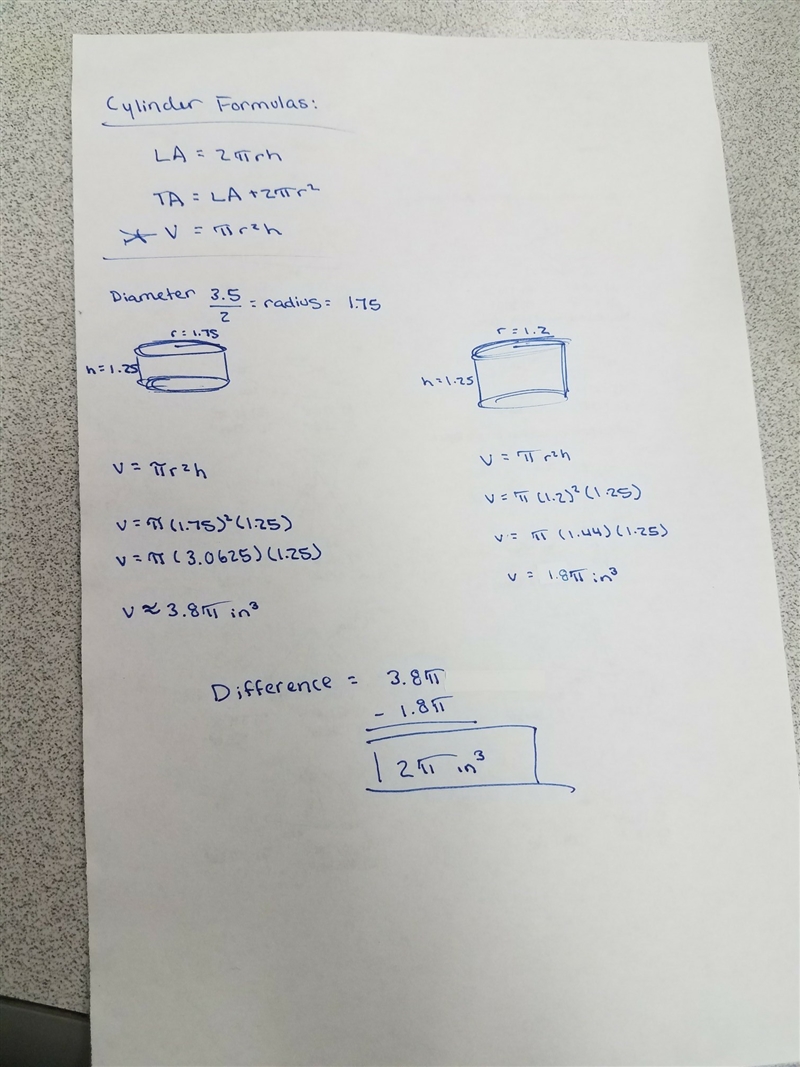 Cylinder Formulas:
LA = 2πrh
TA = LA + 2πr²
* V = πr²h
Diameter 3.5/2 = radius = 1.75
r = 1.75
h = 1.25
V = πr²h
V = π(1.75)²(1.25)
V = π(3.0625)(1.25)
V ≈ 3.8π in³
r = 1.2
h = 1.25
V = πr²h
V = π(1.2)²(1.25)
V = π(1.44)(1.25)
V = 1.8π in³
Difference = 3.8π
- 1.8π
2π in³